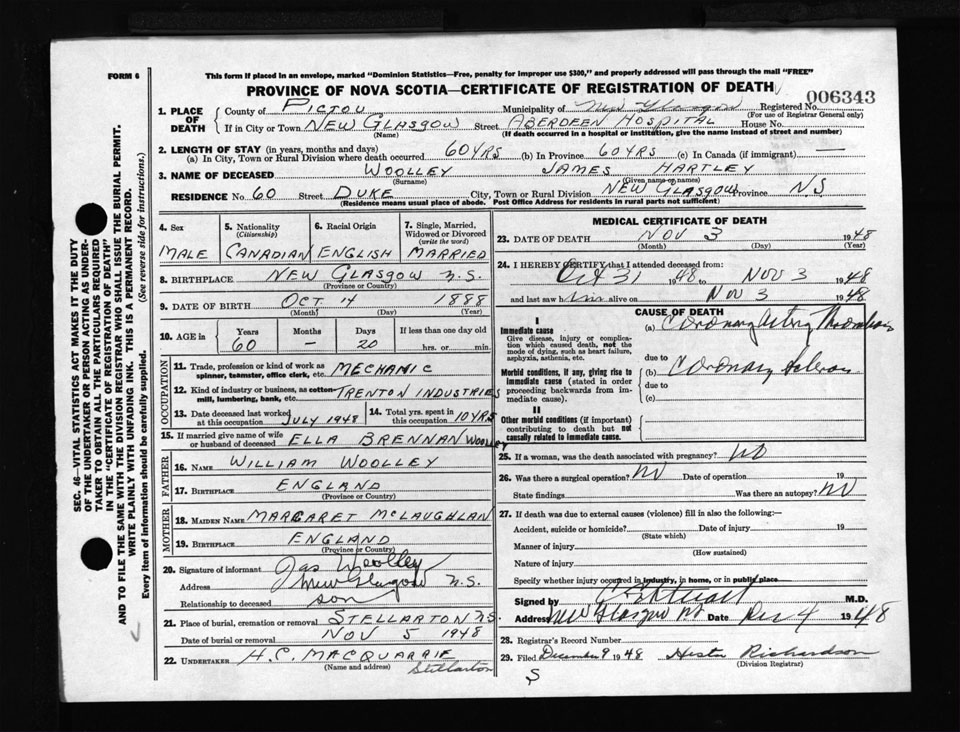 FORM 6
This form if placed in an envelope, marked "Dominion Statistics—Free, penalty for improper use $300," and properly addressed will pass through the mail "FREE"
PROVINCE OF NOVA SCOTIA—CERTIFICATE OF REGISTRATION OF DEATH
006343
1. PLACE OF DEATH
County of PICTOU Municipality of New Glasgow Registered No.
(For use of Registrar General only)
If in City or Town NEW GLASGOW Street ABERDEEN HOSPITAL House No.
(Name) (If death occurred in a hospital or institution, give the name instead of street and number)
2. LENGTH OF STAY (in years, months and days)
(a) In City, Town or Rural Division where death occurred 60 YRS (b) In Province 60 YRS (c) In Canada (if immigrant) —
3. NAME OF DECEASED WOOLLEY JAMES HARTLEY
(Surname) (Given name or names)
RESIDENCE No. 60 Street DUKE City, Town or Rural Division NEW GLASGOW Province N.S
(Residence means usual place of abode. Post Office Address for residents in rural parts not sufficient)
4. Sex
MALE
5. Nationality (Citizenship)
CANADIAN
6. Racial Origin
ENGLISH
7. Single, Married, Widowed or Divorced (write the word)
MARRIED
8. BIRTHPLACE NEW GLASGOW N.S.
(Province or Country)
9. DATE OF BIRTH OCT 14 1888
(Month) (Day) (Year)
10. AGE in Years Months Days If less than one day old
60 — 20 hrs. or min.
OCCUPATION
11. Trade, profession or kind of work as spinner, teamster, office clerk, etc. MECHANIC
12. Kind of industry or business, as cotton-mill, lumbering, bank, etc. TRENTON INDUSTRIES
13. Date deceased last worked at this occupation JULY 1948
14. Total yrs. spent in this occupation 10 YRS
15. If married give name of wife or husband of deceased ELLA BRENNAN WOOLLEY
FATHER
16. NAME WILLIAM WOOLLEY
17. BIRTHPLACE ENGLAND
(Province or Country)
MOTHER
18. MAIDEN NAME MARGARET McLAUGHLAN
19. BIRTHPLACE ENGLAND
(Province or Country)
20. Signature of informant Jas Woolley
Address New Glasgow N.S.
Relationship to deceased son
21. Place of burial, cremation or removal STELLARTON N.S.
Date of burial or removal NOV 5 1948
22. UNDERTAKER H.C. MACQUARRIE
(Name and address) Stellarton
MEDICAL CERTIFICATE OF DEATH
23. DATE OF DEATH NOV 3 1948
(Month) (Day) (Year)
24. I HEREBY CERTIFY that I attended deceased from:
Oct 31 1948 to NOV 3 1948
and last saw him alive on NOV 3 1948
CAUSE OF DEATH
I
Immediate cause
Give disease, injury or complication which caused death, not the mode of dying, such as heart failure, asphyxia, asthenia, etc.
(a) Coronary Artery Thrombosis
due to
Morbid conditions, if any, giving rise to immediate cause (stated in order proceeding backwards from immediate cause).
(b) Coronary
due to
(c)
II
Other morbid conditions (if important) contributing to death but not causally related to immediate cause.
25. If a woman, was the death associated with pregnancy? NO
26. Was there a surgical operation? NO Date of operation 19
State findings Was there an autopsy? NO
27. If death was due to external causes (violence) fill in also the following:—
Accident, suicide or homicide? Date of injury 19
(State which)
Manner of injury
(How sustained)
Nature of injury
Specify whether injury occurred in industry, in home, or in public place
Signed by M.D.
Address New Glasgow Date Dec 4 1948
28. Registrar's Record Number
29. Filed December 9 1948 Hester Richardson
(Division Registrar)
S
SEC. 46—VITAL STATISTICS ACT MAKES IT THE DUTY
OF THE UNDERTAKER OR PERSON ACTING AS UNDERTAKER TO OBTAIN ALL THE PARTICULARS REQUIRED
IN THE "CERTIFICATE OF REGISTRATION OF DEATH"
AND TO FILE THE SAME WITH THE DIVISION REGISTRAR WHO SHALL ISSUE THE BURIAL PERMIT.
WRITE PLAINLY WITH UNFADING INK. THIS IS A PERMANENT RECORD.
Every item of information should be carefully supplied. (See reverse side for instructions.)